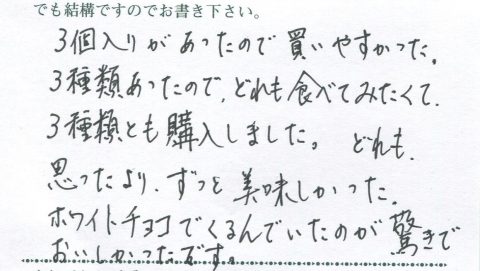 でも結構ですのでお書き下さい。
3個入りがあったので買いやすかった。
3種類あったので、どれも食べてみたくて、
3種類とも購入しました。 どれも、
思ったより、ずっと美味しかった。
ホワイトチョコでくるんでいたのが驚きで
おいしかったです。